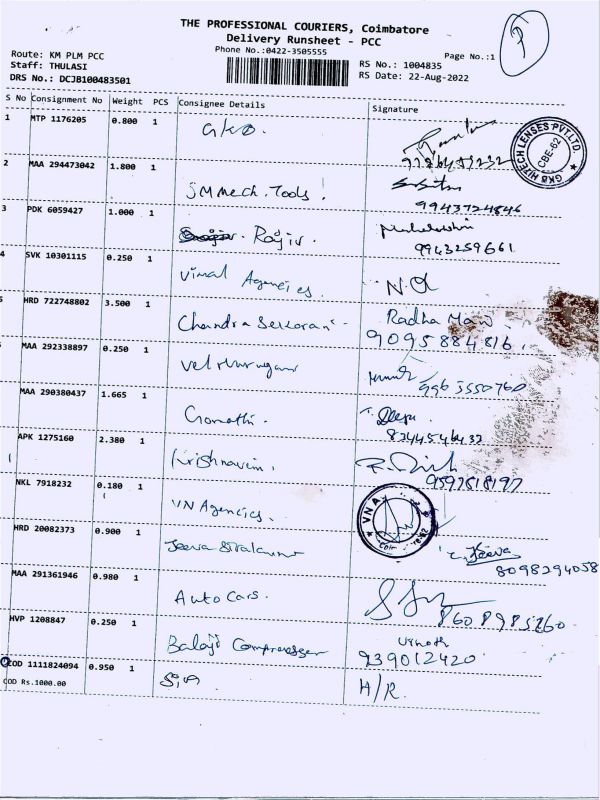 THE PROFESSIONAL COURIERS, Coimbatore
Delivery Runsheet - PCC
Phone No.:0422-3505555
Page No.:1
Route: KM PLM PCC
Staff: THULASI
DRS No.: DCJB100483501
RS No.: 1004835
RS Date: 22-Aug-2022
S No Consignment No Weight PCS Consignee Details Signature
1 MTP 1176205 0.800 1 GKB.
GKB HITECH LENSES PVT.LTD. CBE-62
2 MAA 294473042 1.800 1 JM Mech. Tools!
9943724846
3 PDK 6059427 1.000 1 Rajiv.
9943259661
4 SVK 10301115 0.250 1 Vimal Agencies. N.A
HRD 722748802 3.500 1 Chandra Sekaran Radha Mani
9095884816.
MAA 292338897 0.250 1 Velmurugan
9963550760
MAA 290380437 1.665 1 Gomathi.
APK 1275160 2.380 1 Krishnaveni.
9597818197
NKL 7918232 0.180 1 VN Agencies.
HRD 20082373 0.900 1 Jeeva
Jeeva
8098294058
MAA 291361946 0.980 1 Auto Cars.
8608985260
HVP 1208847 0.250 1 Balaji Compressor Vinoth
939012420
COD 1111824094 0.950 1 H/R.
COD Rs.1000.00